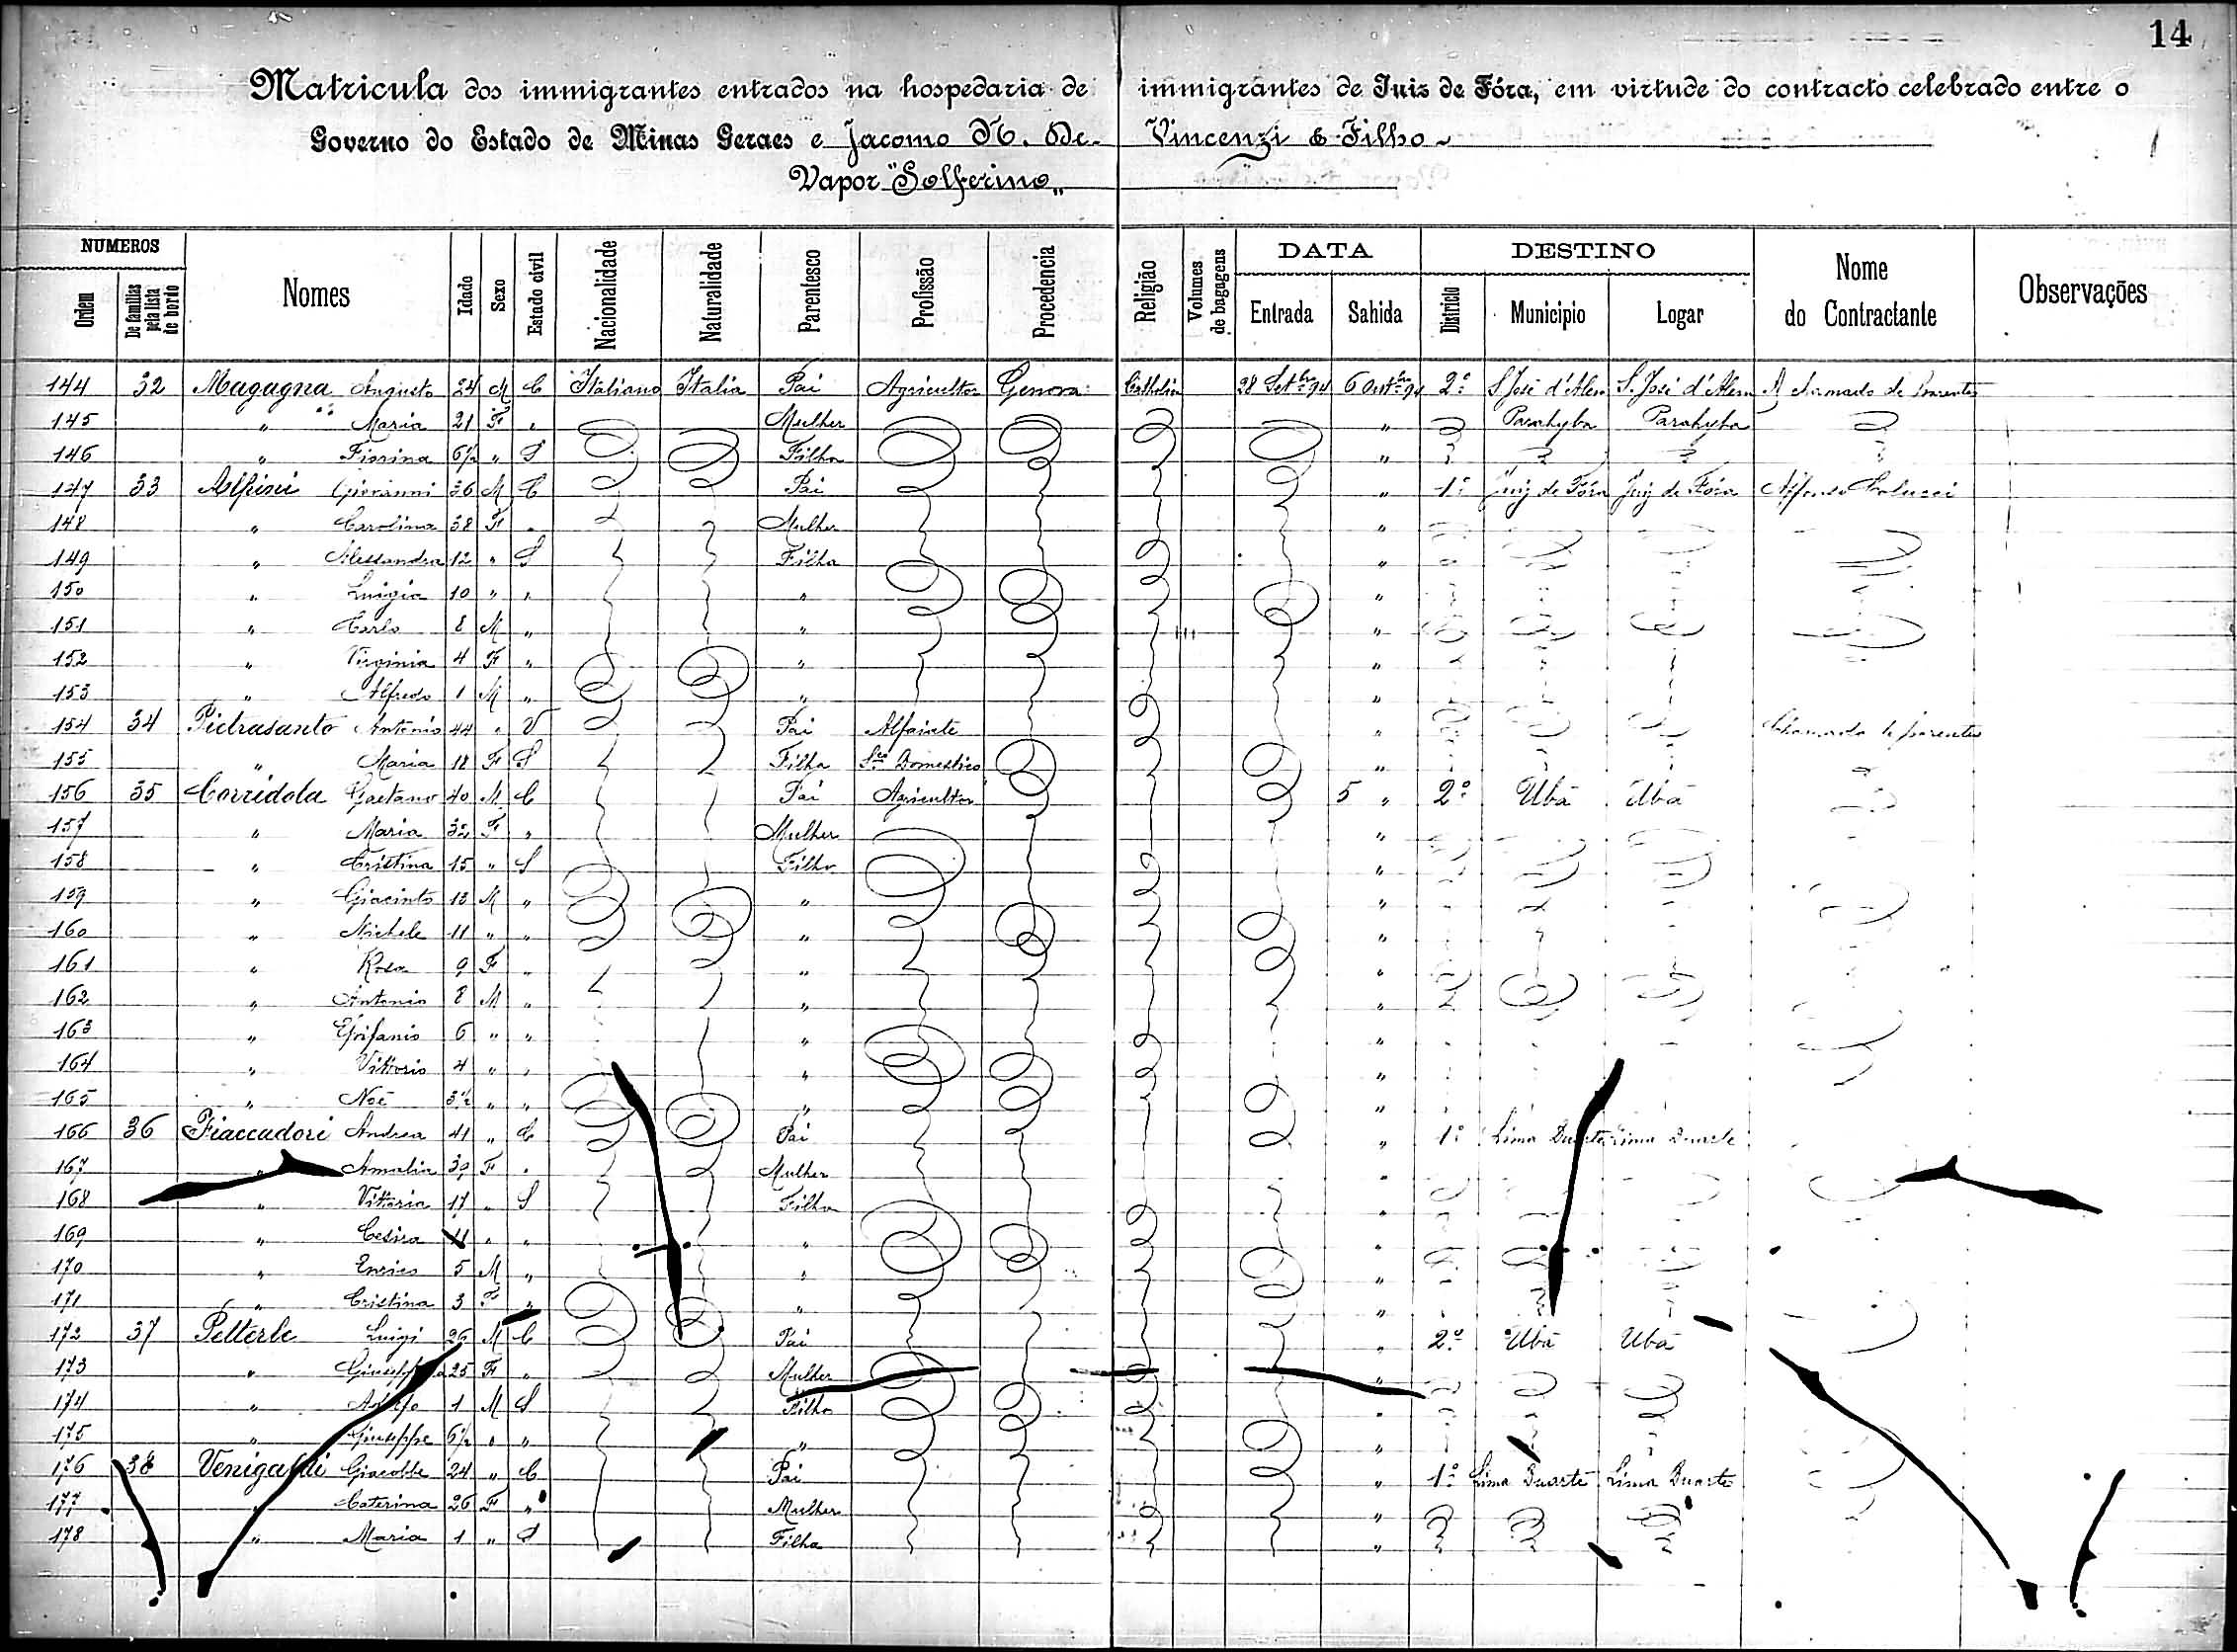 14
Matricula dos immigrantes entrados na hospedaria de immigrantes de Juiz de Fóra, em virtude do contracto celebrado entre o
Governo do Estado de Minas Geraes e Jacomo N. De Vincenzi & Filho
Vapor "Solferino"
NUMEROS DATA DESTINO
Ordem De familias pela lista de bordo Nomes Idade Sexo Estado civil Nacionalidade Naturalidade Parentesco Profissão Procedencia Religião Volumes de bagagens Entrada Sahida Districto Municipio Logar Nome do Contractante Observações
144 32 Magagna Augusto 24 M C Italiano Italia Pai Agricultor Genova 28 Setbro 94 6 Outbro 94 2º S. José d'Alem S. José d'Alem A chamado de Parentes
145 " Maria 21 F " Mulher " Parahyba Parahyba
146 " Fiorina 6/12 " S Filha "
147 33 Alpini Giovanni 36 M C Pai " 1º Juiz de Fóra Juiz de Fóra Affonso
148 " Carolina 38 F " Mulher "
149 " Alessandra 12 " S Filha "
150 " Luigia 10 " " " "
151 " Carlo 8 M " " "
152 " Virginia 4 F " " "
153 " Alfredo 1 M " " "
154 34 Pietrasanto Antonio 44 " V Pai Alfaiate " Chamado de parentes
155 " Maria 18 F S Filha Sço Domestico "
156 35 Corridola Gaetano 40 M C Pai Agricultor 5 " 2º Ubá Ubá
157 " Maria 32 F " Mulher "
158 " Cristina 15 " S Filha "
159 " Giacinto 13 M " " "
160 " Michele 11 " " " "
161 " Rosa 9 F " " "
162 " Antonio 8 M " " "
163 " Epifanio 6 " " " "
164 " Vittorio 4 " " " "
165 " Noé " " " "
166 36 Fiaccadori Andrea 41 " C Pai " 1º Lima Duarte Lima Duarte
167 " Amalia 39 F " Mulher "
168 " Vittoria 17 " S Filha "
169 " Cesira 11 " " " "
170 " Enrico 5 M " " "
171 " Cristina 3 F " " "
172 37 Petterle Luigi 26 M C Pai " 2º Ubá Ubá
173 " 25 F " Mulher "
174 " 1 M S Filho "
175 " Giuseppe 6/12 " " " "
176 38 Giacobbe 24 " C Pai " 1º Lima Duarte Lima Duarte
177 " Caterina 26 F " Mulher "
178 " Maria 1 " S Filha "